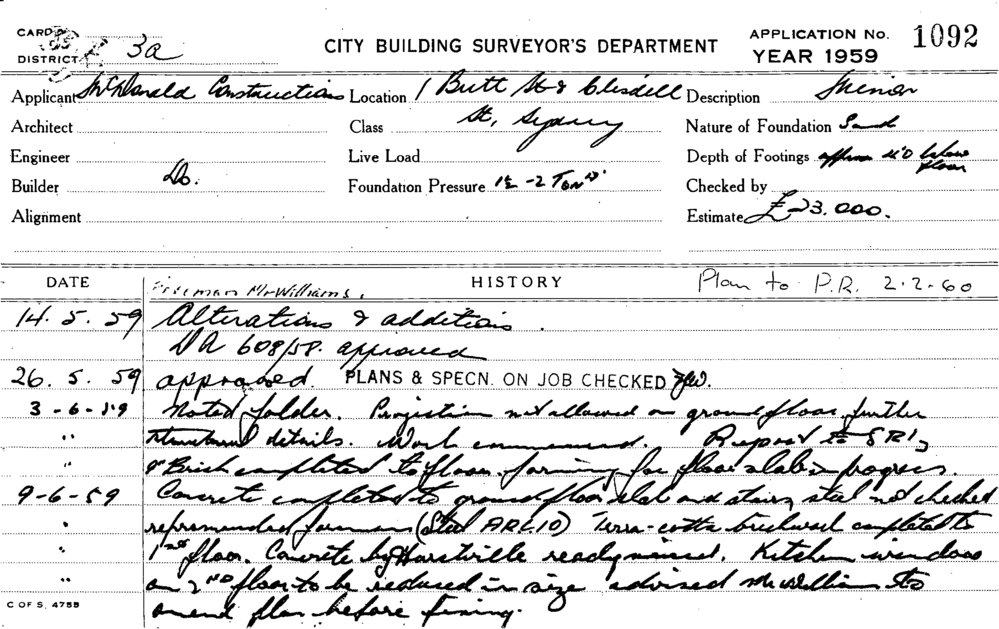 CARD
DISTRICT 3a
CITY BUILDING SURVEYOR'S DEPARTMENT
APPLICATION No. 1092
YEAR 1959
Applicant McDonald Constructions Location 1 Butt St & Clisdell Description Minor
Architect Class St, Sydney Nature of Foundation Sand
Engineer Live Load Depth of Footings approx 4'0 below floor
Builder Do. Foundation Pressure 1½ - 2 Ton Checked by
Alignment Estimate £23.000.
DATE HISTORY Plan to P.R. 2-2-60
Foreman Mr Williams.
14. 5. 59 Alterations & additions.
DA 608/58. approved
26. 5. 59 approved. PLANS & SPECN. ON JOB CHECKED
3-6-59 Noted folder. Projection not allowed on ground floor, further
" structural details. Work commenced. Report to
" Brick completed to floor, forming for floor slab in progress.
9-6-59 Concrete completed to ground floor slab and stairs, steel not checked
" reprimanded foreman (Steel ARC 10) Terra-cotta brickwork completed to
" 1st floor. Concrete by Hurstville readymixed. Kitchen windows
" on 2ND floor to be reduced in size advised McWilliam to
amend plan before fixing.
C OF S. 4755